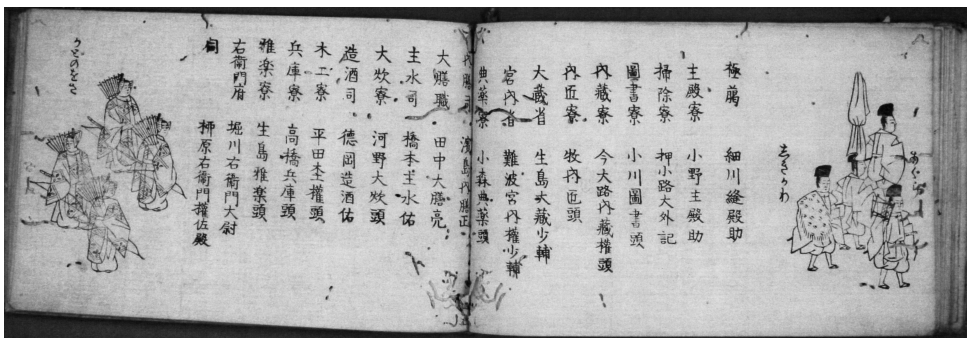 極﨟 細川縫殿助
主殿寮 小野主殿助
掃除寮 押小路大外記
圖書寮 小川圖書頭
内藏寮 今大路内藏権頭
内匠寮 牧内匠頭
大藏省 生島大藏少輔
宮内省 難波宮内權少輔
典薬寮 小森典薬頭
内膳司 濱島内膳正
大膳職 田中大膳亮
主水司 橋本主水佑
大炊寮 河野大炊頭
造酒司 德岡造酒佑
木工寮 平田木工權頭
兵庫寮 高橋兵庫頭
雅楽寮 生島雅楽頭
右衛門府 堀川右衛門大尉
同 柳原右衛門權佐殿